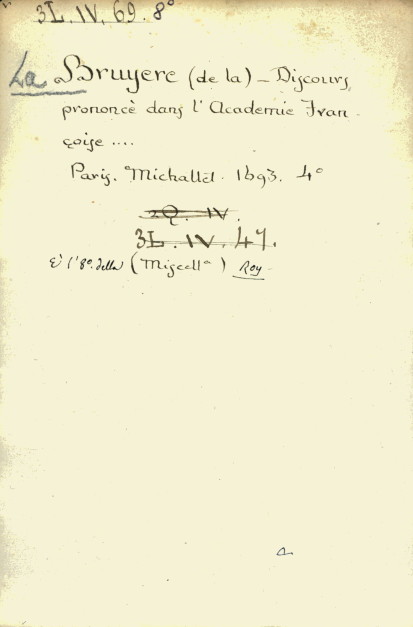 3L. IV. 69. 8°
La Bruyere (de la) - Discours
prononcè dans l' Academie Fran-
çoise ....
Paris. Michallet. 1693. 4°
2Q. IV.
3L. IV. 47.
È l'8° della (Miscellª) Roy